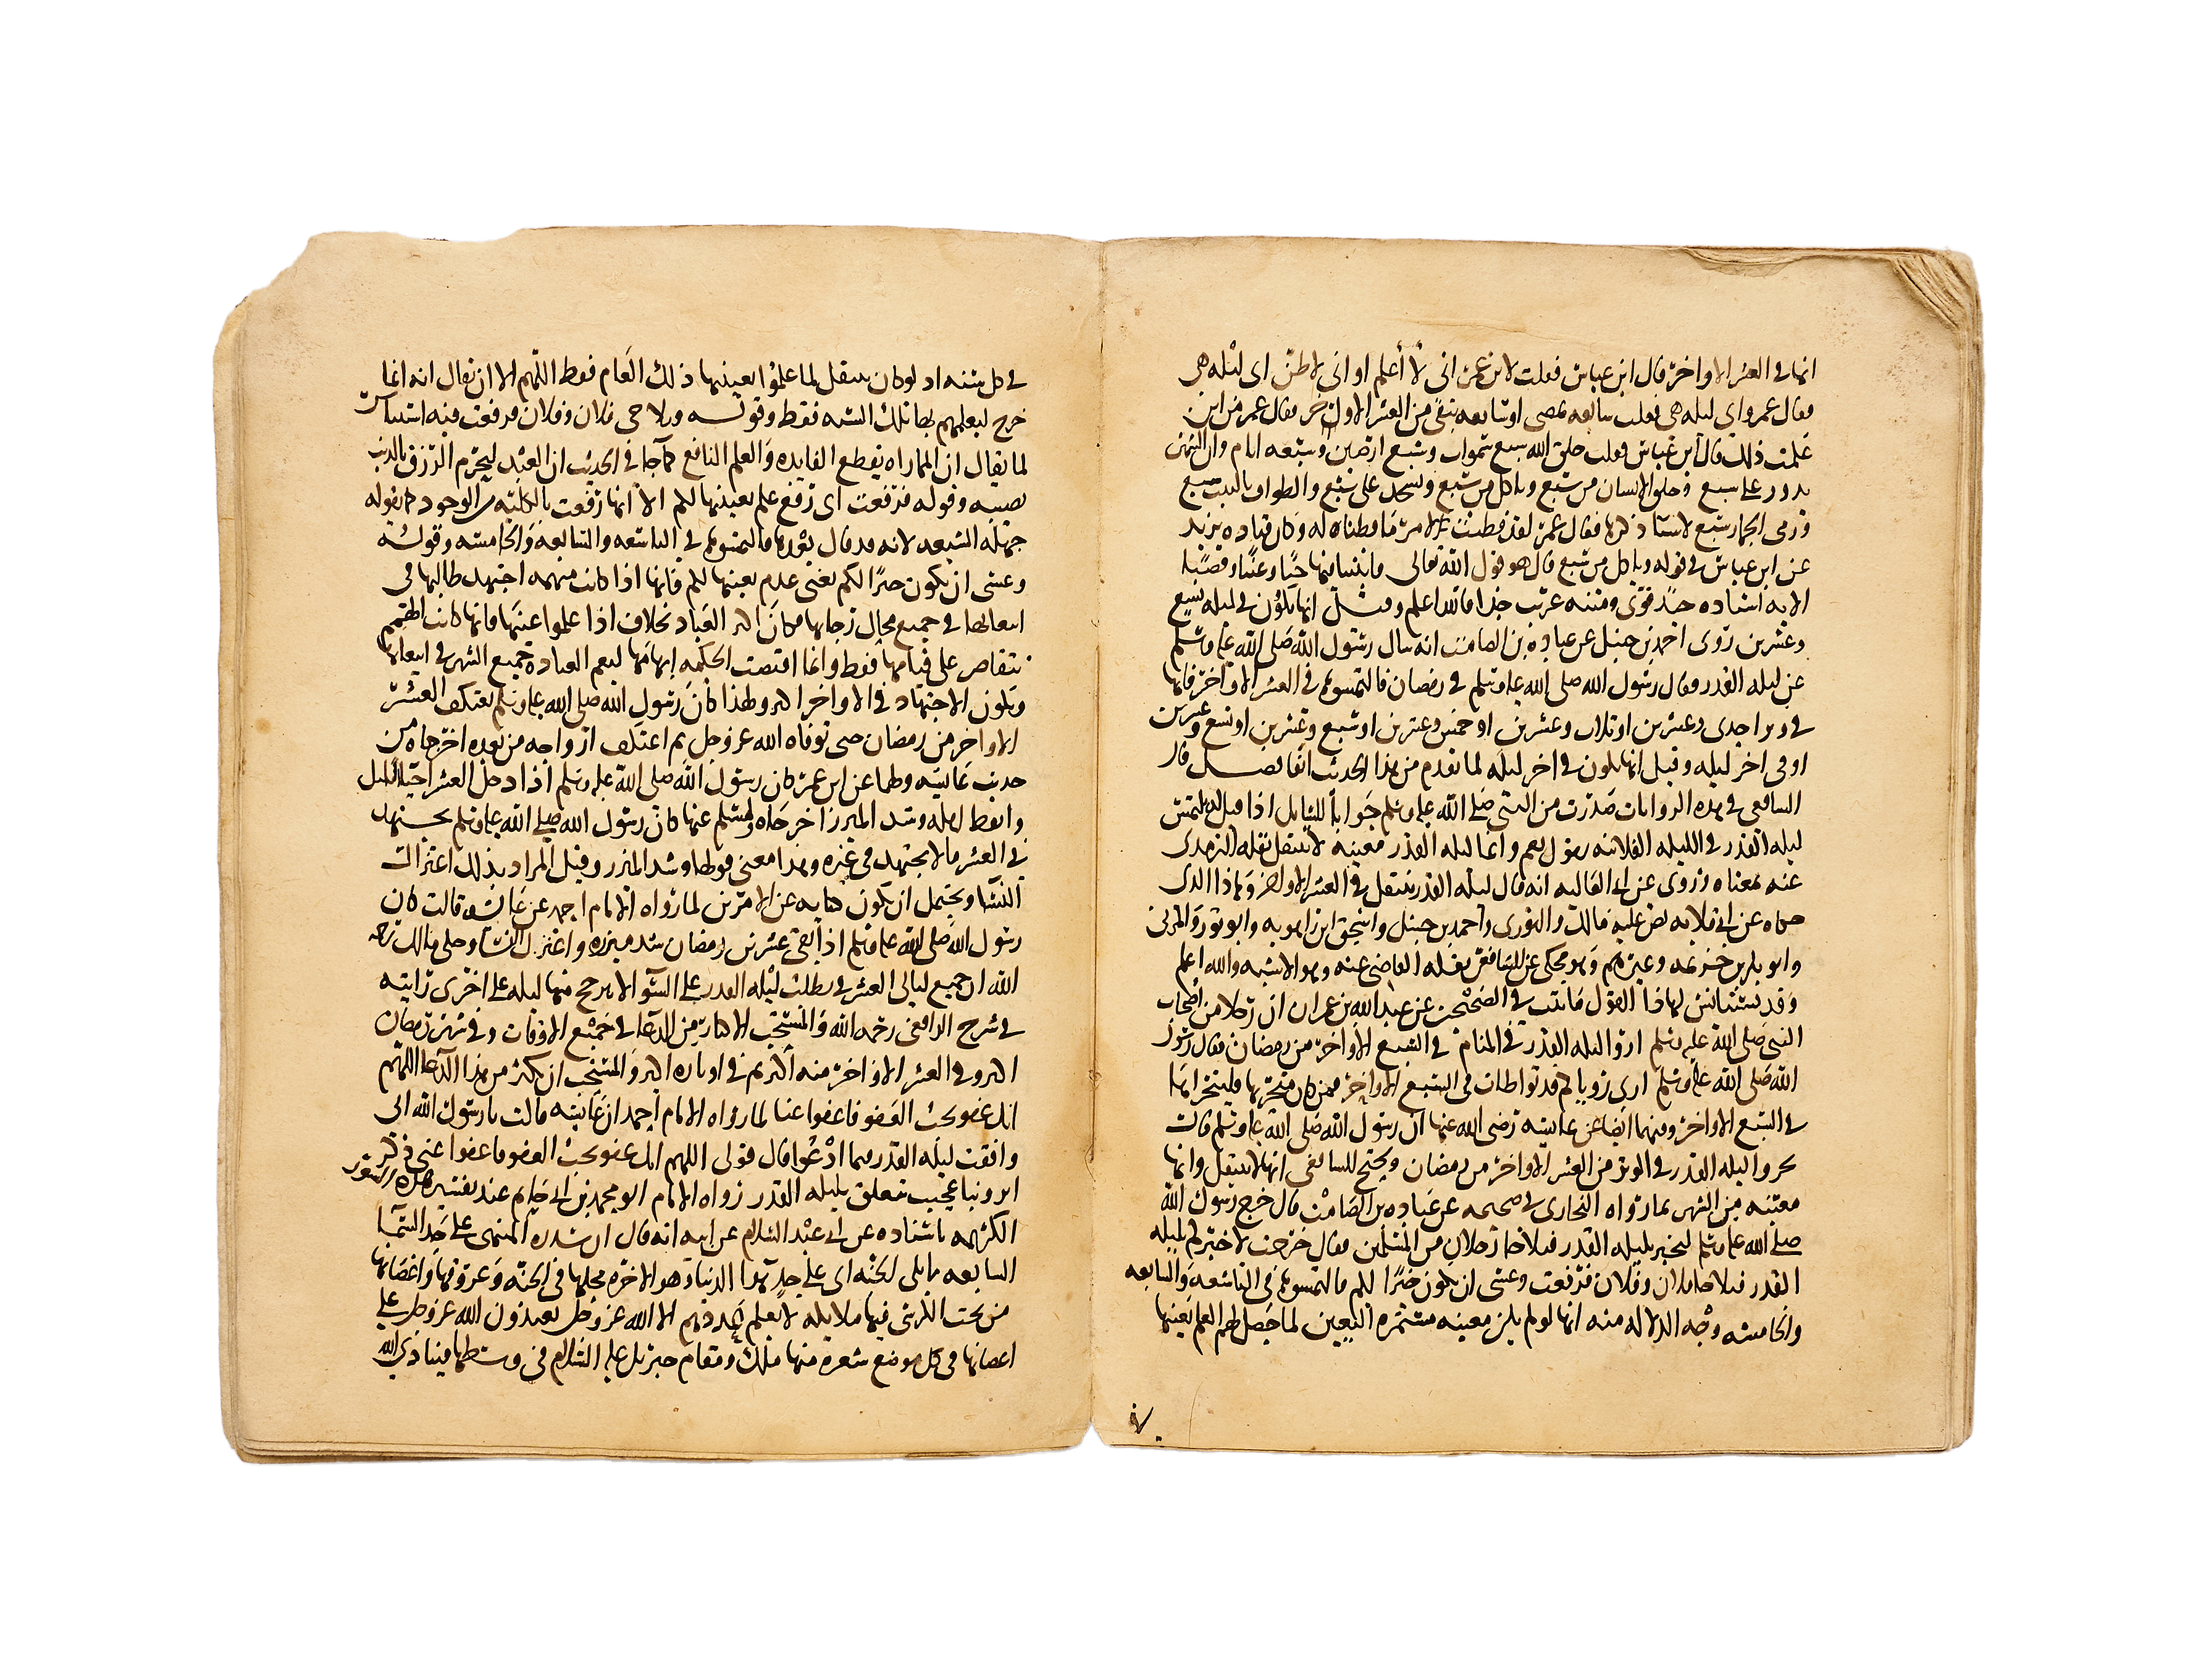 انها في العشر الاواخر قال ابن عباس فقلت لابن عمر اني لا أعلم او اني لاظن اى ليله هى
فقال عمر واى ليله هى فقلت سابعه تمضى او سابعه تبقى من العشر الاواخر فقال عمر من اين
علمت ذلك قال ابن عباس فقلت خلق الله سبع سموات وسبع ارضين وسبعه ايام وان الشهر
يدور على سبع وخلق الانسان من سبع وياكل من سبع ويسجد على سبع والطواف بالبيت سبع
ورمى الجمار سبع لاشيا ذكرها فقال عمر لقد فطنت لامر ما فطنا له وكان قتاده يزيد
عن ابن عباس في قوله وياكل من سبع قال هو قول الله تعالى فانبتنا فيها حبا وعنبا وقضبا
الايه اسناده جيد قوى ومتنه غريب جدا فالله اعلم وقيل انها تكون في ليله تسع
وعشرين روى احمد بن حنبل عن عباده بن الصامت انه سال رسول الله صلى الله عليه وسلم
عن ليله القدر فقال رسول الله صلى الله عليه وسلم في رمضان فالتمسوها في العشر الاواخر فانها
في وتر احدى وعشرين او ثلاث وعشرين او خمس وعشرين او سبع وعشرين او تسع وعشرين
او في اخر ليله وقيل انها تكون في اخر ليله لما تقدم من هذا الحديث انفا فصل قال
الشافعي في هذه الروايات صدرت من النبي صلى الله عليه وسلم جوابا للسايل اذا قيل له نلتمس
ليله القدر في الليله الفلانيه يقول نعم وانما ليله القدر معينه لا تنتقل نقله الترمذى
عنه بمعناه وروى عن ابي القلابه انه قال ليله القدر تنتقل في العشر الاواخر وهذا الذى
حكاه عن ابي قلابه نص عليه مالك والثورى واحمد بن حنبل واسحق ابن راهويه وابو ثور والمزنى
وابو بكر بن خزيمه وغيرهم وهو محكى عن الشافعي نقله القاضى عنه وهو الاشبه والله اعلم
وقد يستانس لهذا القول ما ثبت في الصحيحين عن عبد الله بن عمر ان رجلا من اصحاب
النبي صلى الله عليه وسلم اروا ليله القدر في المنام في السبع الاواخر من رمضان فقال رسول
الله صلى الله عليه وسلم ارى روياكم قد تواطات في السبع الاواخر فمن كان متحريها فليتحرها
في السبع الاواخر وفيهما ايضا عن عايشه رضى الله عنها ان رسول الله صلى الله عليه وسلم قال
تحروا ليله القدر في الوتر من العشر الاواخر من رمضان ويحتج للشافعي انها لا تنتقل وانها
معينه من الشهر بما رواه البخارى في صحيحه عن عباده بن الصامت قال خرج رسول الله
صلى الله عليه وسلم ليخبر بليله القدر فتلاحا رجلان من المسلمين فقال خرجت لاخبركم بليله
القدر فتلاحا فلان وفلان فرفعت وعسى ان يكون خيرا لكم فالتمسوها في التاسعه والسابعه
والخامسه وجه الدلاله منه انها لو لم يكن معينه مستمره التعيين لما حصل لهم العلم بعينها
في كل سنه اذ لو كان ينتقل لما علموا بعينها ذلك العام فقط اللهم الا ان يقال انه انما
خرج ليعلمهم بها تلك السنه فقط وقوله فتلاحى فلان وفلان فرفعت فيه استيناس
لما يقال ان المماراه يقطع الفايده والعلم النافع كما جا في الحديث ان العبد ليحرم الرزق بالذنب
يصيبه وقوله فرفعت اى رفع علم بعينها لكم لا انها رفعت بالكليه من الوجود كما يقوله
جهله الشيعه لانه قد قال بعد هذا فالتمسوها في التاسعه والسابعه والخامسه وقوله
وعسى ان يكون خيرا لكم يعنى عدم بعينها لكم فانها اذا كانت مبهمه اجتهد طالبها في
ابتغايها في جميع محال رجايها فكان اكثر للعباد بخلاف اذا علموا عينها فانها كانت الهمم
تتقاصر على قيامها فقط وانما اقتضت الحكمه ابهامها ليعم العباده جميع الشهر في ابتغايها
ويكون الاجتهاد في الاواخر اكثر ولهذا كان رسول الله صلى الله عليه وسلم يعتكف العشر
الاواخر من رمضان حتى توفاه الله عز وجل ثم اعتكف ازواجه من بعده اخرجاه من
حديث عايشه ولهما عن ابن عمر كان رسول الله صلى الله عليه وسلم اذا دخل العشر احيا الليل
وايقظ اهله وشد الميزر اخرجاه ولمسلم عنها كان رسول الله صلى الله عليه وسلم يجتهد
في العشر ما لا يجتهد في غيره وهذا معنى قولها وشد الميزر وقيل المراد بذلك اعتزال
النسا ويحتمل ان يكون كنايه عن الامرين لما رواه الامام احمد عن عايشه قالت كان
رسول الله صلى الله عليه وسلم اذا بقى عشر من رمضان شد ميزره واعتزل النسا وحكى مالك رحمه
الله ان جميع ليالي العشر في تطلب ليله القدر على السوا لا يترجح منها ليله على اخرى رايته
في شرح الرافعى رحمه الله والمستحب الاكثار من الدعا في جميع الاوقات وفي شهر رمضان
اكثر وفي العشر الاواخر منه أكثر ثم في اوتاره اكثر والمستحب ان يكثر من هذا الدعا اللهم
انك عفو تحب العفو فاعفوا عنا لما رواه الامام احمد ان عايشه قالت يا رسول الله انى
وافقت ليله القدر فما ادعوا قال قولى اللهم انك عفو تحب العفو فاعفوا عنى في ذكر
اثر ونبا عجيب يتعلق بليله القدر رواه الامام ابو محمد بن ابي حاتم عند تفسير هذه السوره
الكريمه باسناده عن ابي عبد السلام عن ابيه انه قال ان سدره المنتهى على حد السما
السابعه مما يلى الجنه اى على حد هوا الدنيا وهوا الاخره محلها في الجنه وعروقها واغصانها
من تحت الكرسى فيها ملايكه لا يعلم عددهم الا الله عز وجل يعبدون الله عز وجل على
اغصانها في كل موضع شعره منها ملك ومقام جبريل عليه السلام في وسطها فينادى الله